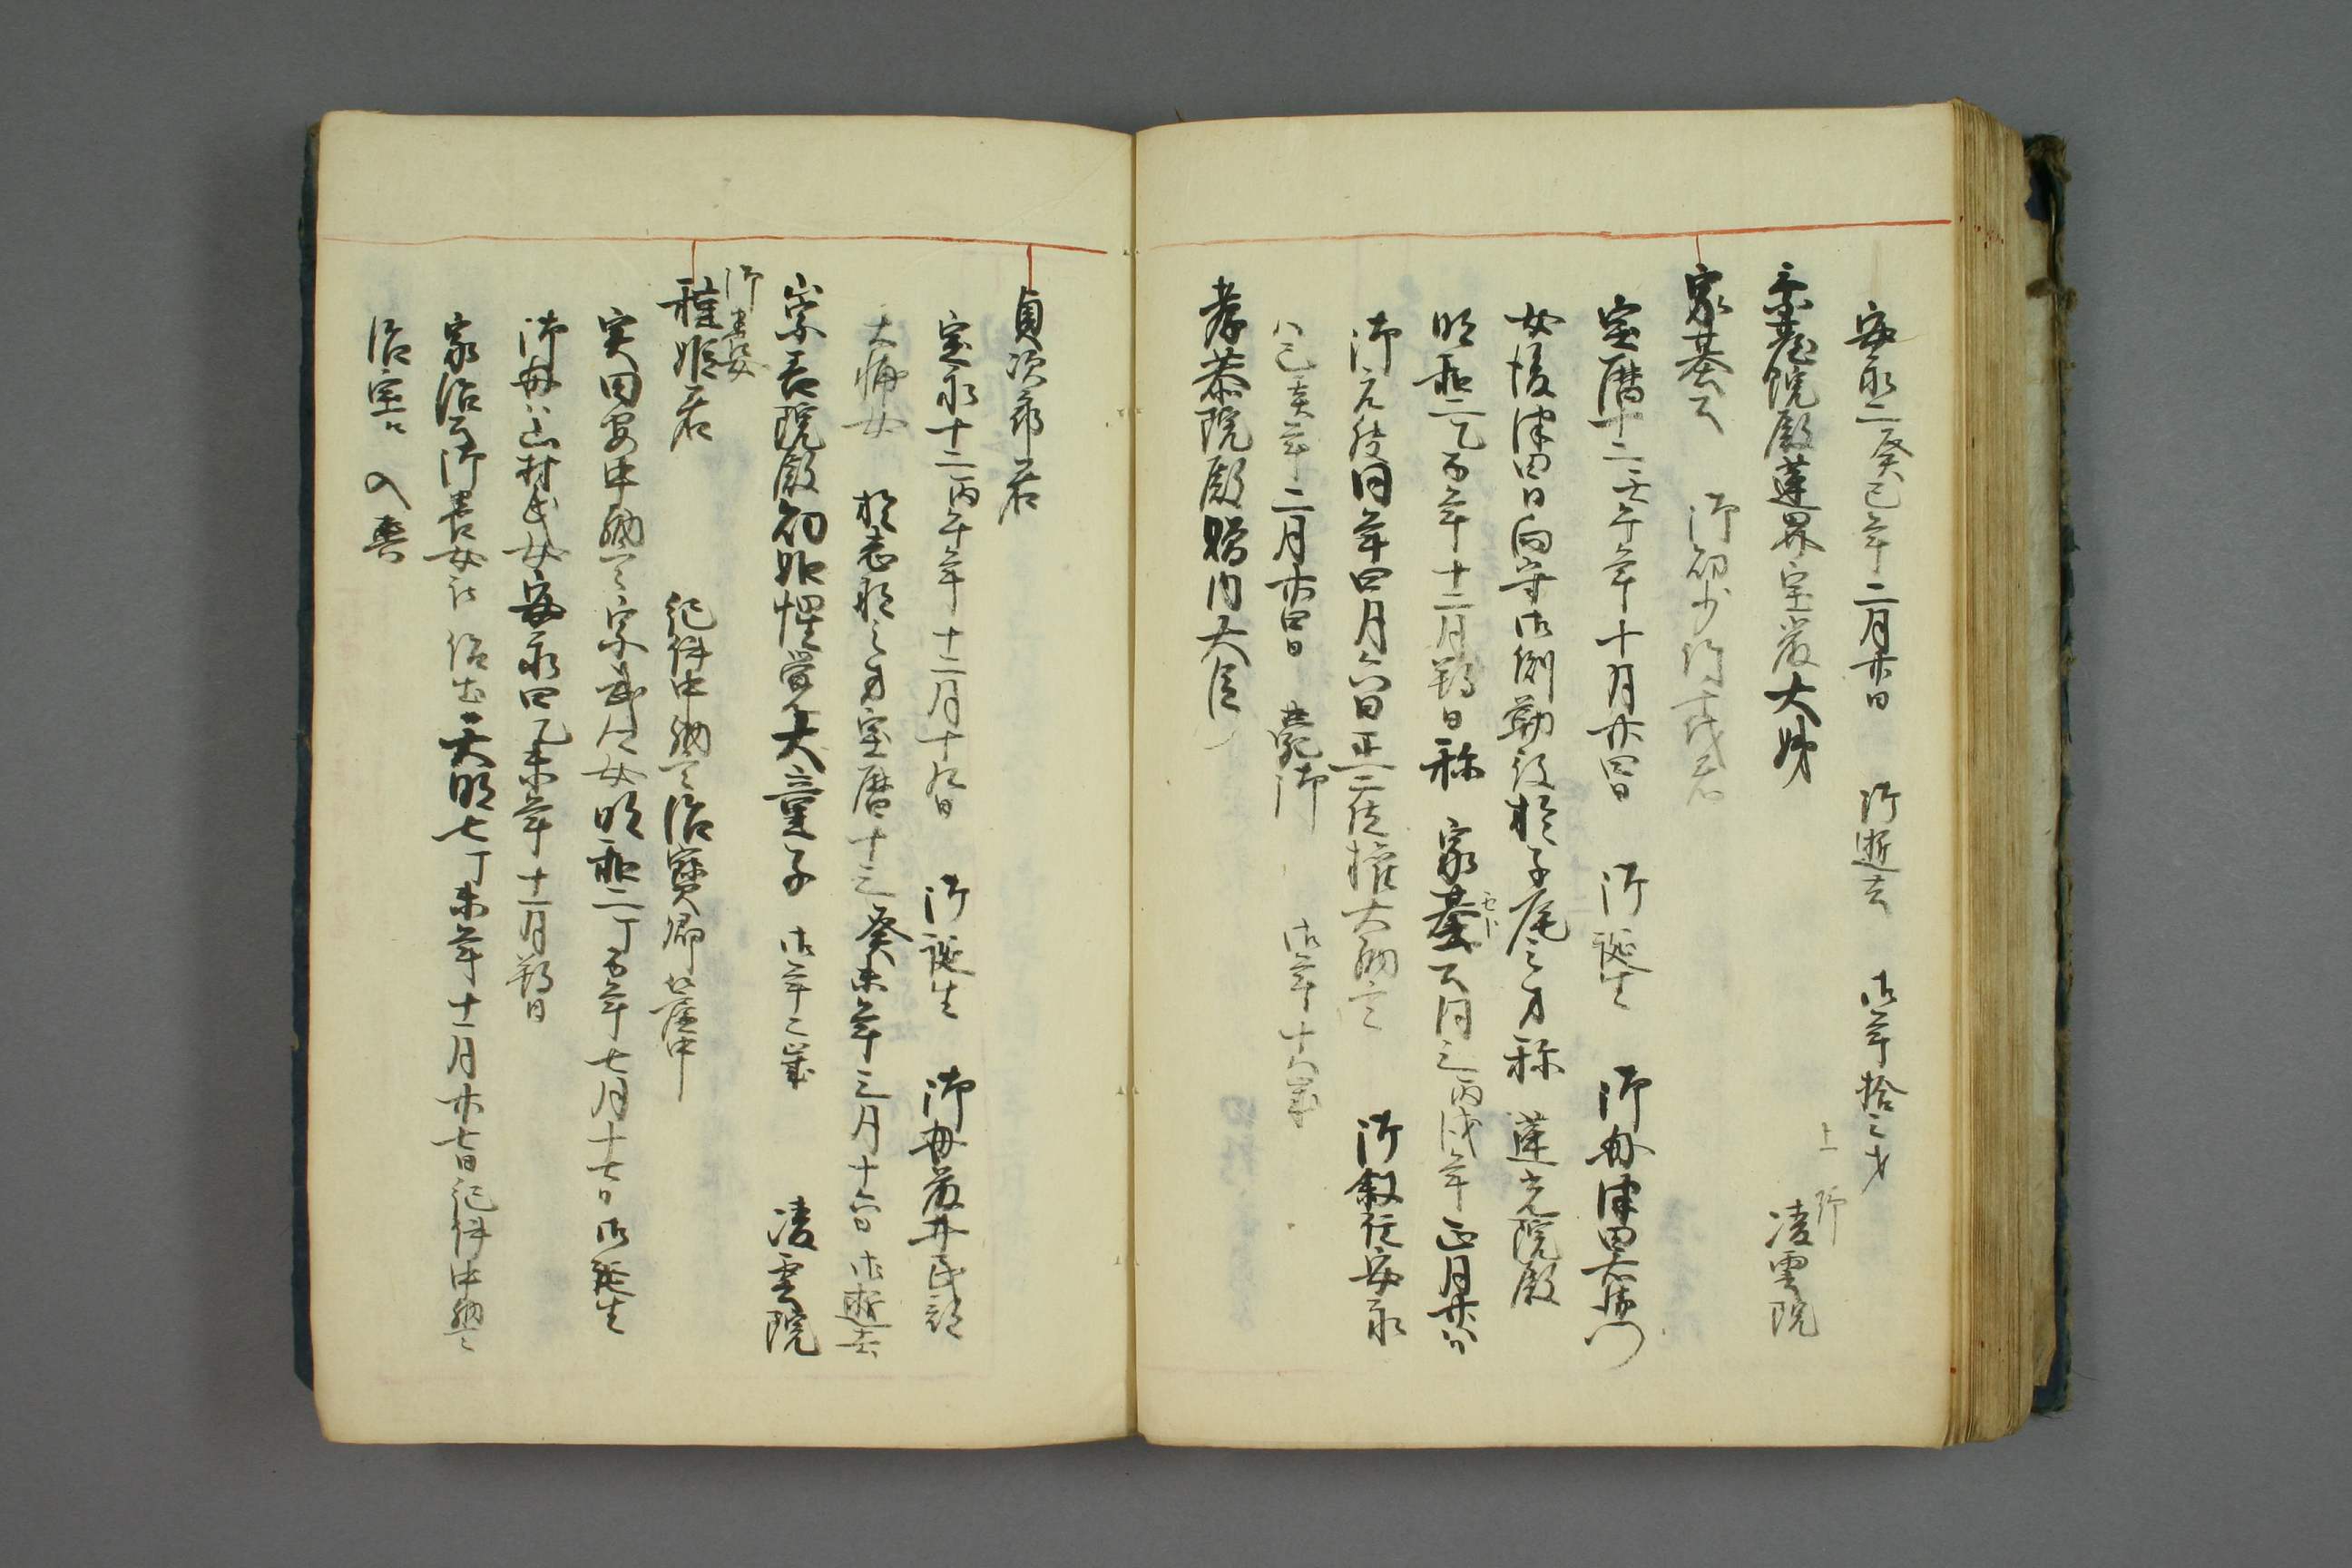 安永二癸巳年二月廿日 御逝去 御年拾三才
乗台院殿蓮界宝厳大姉 上野 凌雲院
家基公 御幼少 竹千代君
宝暦十二壬午年十月廿四日 御誕生 御母津田
女後津田日向守御側勤後於千尾之方称 蓮光院殿
明和二乙酉年十二月朔日称 家基公同三丙戌年正月廿八
御元服同年四月六日正二位権大納言 御叙任安永
八己亥年二月廿四日 薨御 御年十八歳
孝恭院殿贈内大臣
貞次郎君
宝永十二壬午年十二月十九日 御誕生 御母藤井民部
大輔女 之方宝暦十三癸未年三月十六日御逝去
崇善院殿幻如惺覚大童子 御年二歳 凌雲院
御養女
種姫君 紀伊中納言治宝卿 簾中
実田安中納言宗武公女明和二丁酉年七月十七日御誕生
御母ハ山村氏女安永四乙未年十一月朔日
家治公御養女 天明七丁未年十一月廿七日紀伊中納言
治宝江 入輿